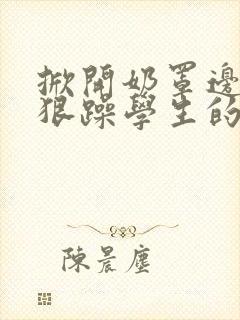 掀開奶罩邊
狠躁學生的
陳晨塵